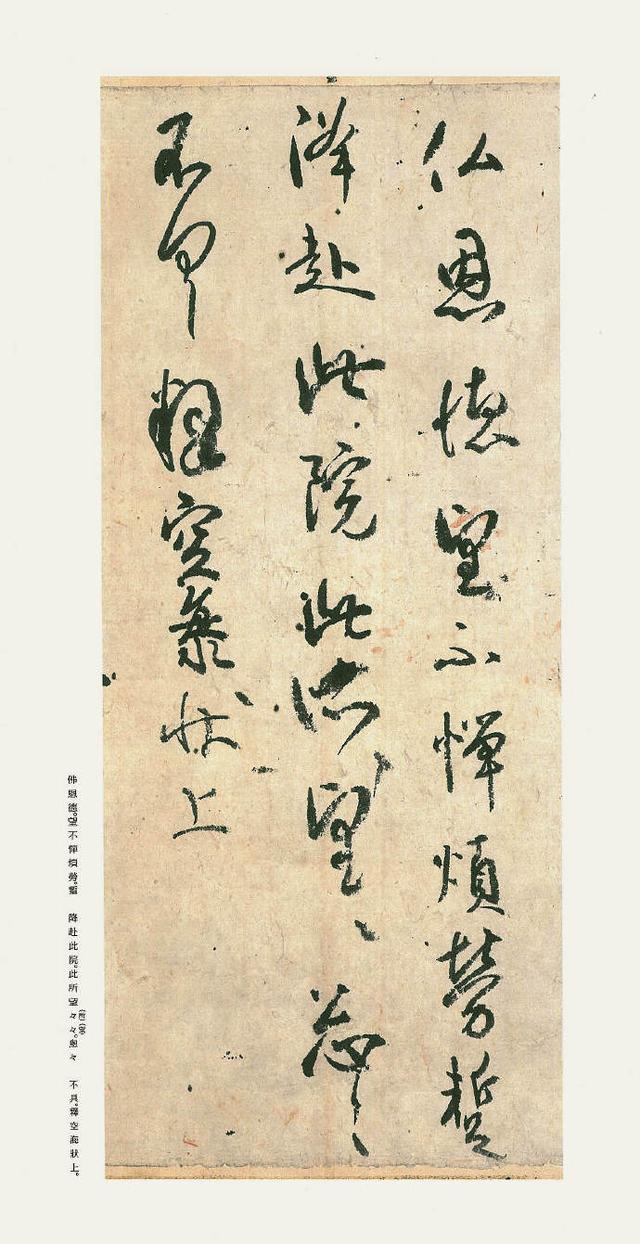 仏恩德望不憚煩勞蹔
降赴此院此所望〻忩〻
不具釋空海狀上
佛恩德。望不憚煩勞。蹔 降赴此院。此所望々々。怱々 不具。釋空海狀上。